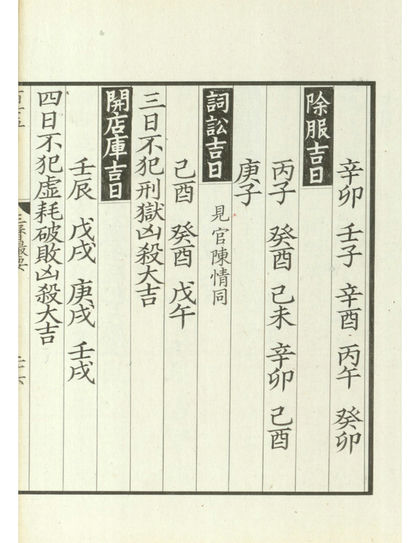 辛卯 壬子 辛酉 丙午 癸卯
除服吉日
丙子 癸酉 己未 辛卯 己酉
庚子
詞訟吉日 見官陳情同
己酉 癸酉 戊午
三日不犯刑獄凶殺大吉
開店庫吉日
壬辰 戊戌 庚戌 壬戌
四日不犯虛耗破敗凶殺大吉